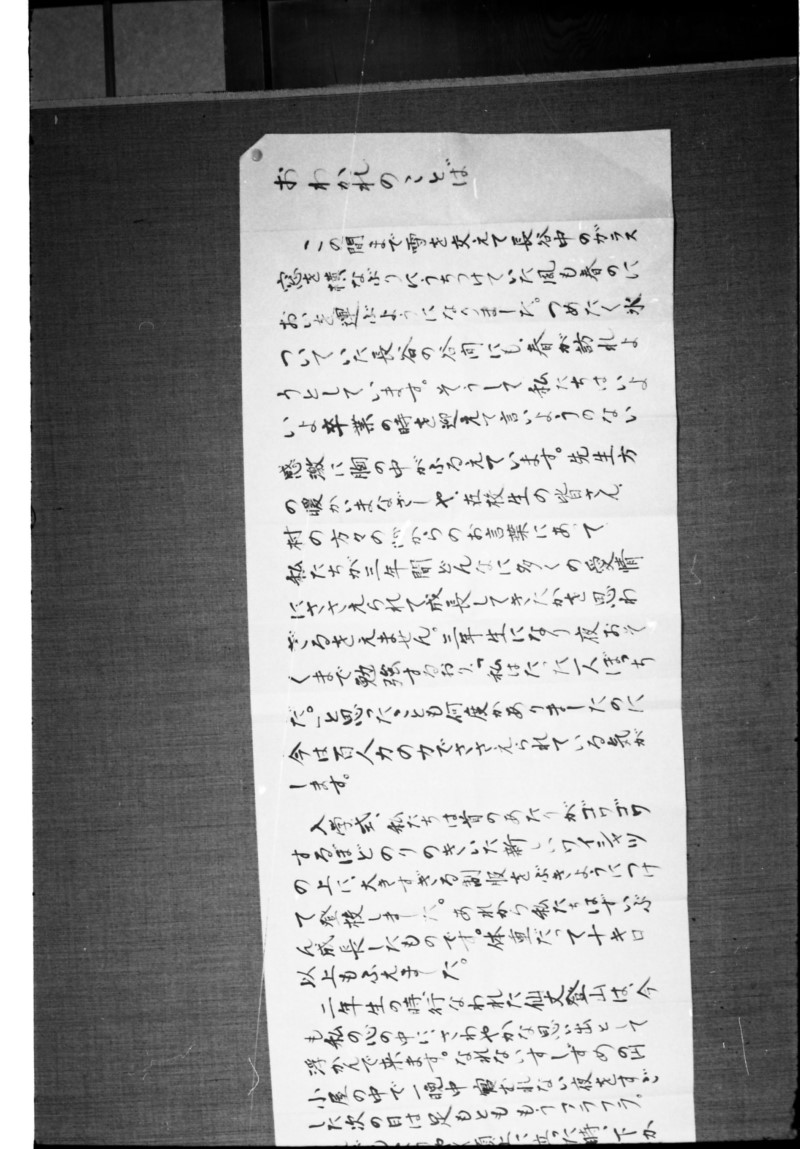 おわかれのことば
この間まで雪を交えて長谷中のガラス
窓を横なぶりにうちつけていた風も春のに
おいを運ぶようになりました。つめたく氷
ついていた長谷の谷間にも、春が訪れよ
うとしています。そうして私たちはいよ
いよ卒業の時を迎えて言いようのない
感激に胸の中がふるえています。先生方
の暖かいまなざしや、在校生の皆さん、
村の方々の心からのお言葉にあって
私たちが三年間どんなに多くの愛情
にささえられて成長してきたかを思わ
ざるをえません。三年生になり夜おそ
くまで勉強するおり、「私はたった一人ぼっち
だ。」と思ったことも何度かありましたのに
今は百人力の力でささえられている気が
します。
入学式、私たちは首のあたりがゴワゴワ
するほどのりのきいた新しいワイシャツ
の上に、大きすぎる制服をぶきようにつけ
て登校しました。あれから私たちはずいぶ
ん成長したものです。体重だって十キロ
以上もふえました。
二年生の時行なわれた仙丈登山は、今
も私の心の中に、さわやかな思い出として
浮かんで来ます。なれないすしずめの山
小屋の中で一晩中寝むれない夜をすご
した次の日は足もとももうフラフラ。
頂上に立った時、下か